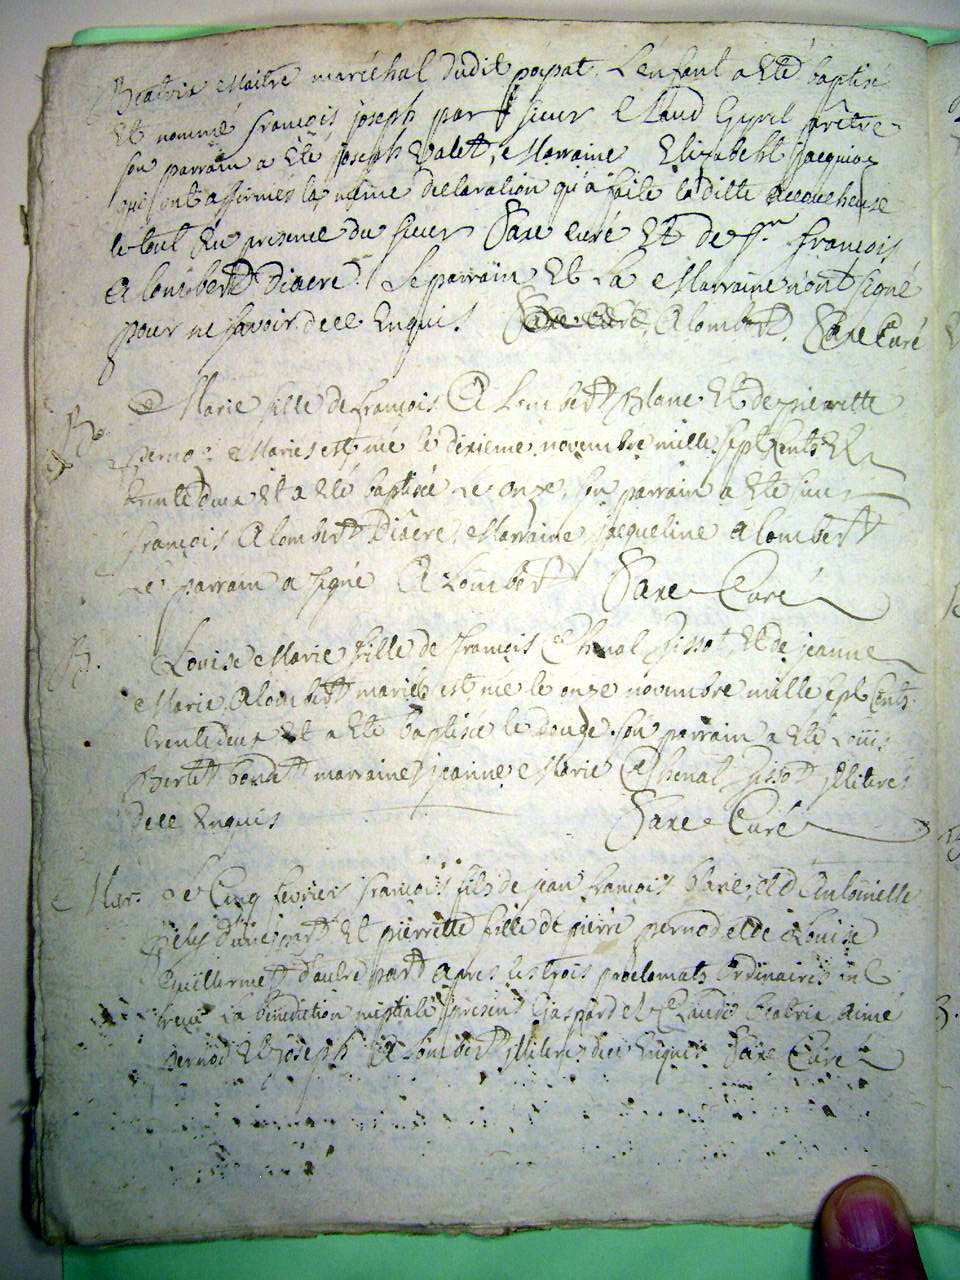 Beatrix Maitre maréchal dudit poipat. L'enfant a Eté baptisé
Et nommé françois joseph par sieur Claud prêtre
son parrain a Eté joseph Valet, Marraine Elizabeht jacquier
qui ont affirmés la même declaration qu'a faite la ditte accoucheuse
le tout En presence du sieur Faxe curé Et de Sr. françois
Alombert Diacre. Le parrain Et La Marraine n'ont signé
pour ne savoir de ce Enquis Faxe curé, Alombert. Faxe Curé
B. Marie fille de françois Alombert Blanc Et de pierrette
pernod Mariés est née le dixieme novembre mille sept Cents Et
trente deux Et a Eté baptisée Le onze, son parrain a Eté sieur
françois Alombert Diacre, Marraine jacqueline Alombert
Le parrain a signé Alombert Faxe Curé
B. Louise Marie fille de françois Chenal Et de jeanne
Marie Alombert mariés est née le onze novembre mille sept Cents
trente deux Et a Eté baptisée le douze son parrain a Eté Louis
Bertet marraine jeanne Marie Chenal illiterés
de ce Enquis Faxe Curé
Mar. Le Cinq fevrier françois fils de jean françois blanc, et d'Antoinette
d'une part Et pierrette fille de pierre pernod et de Louise
Guillermet d'autre part apres les trois proclamats Ordinaires ont
reçu La benediction nuptiale present Gaspard et Claude Beatrix, aimé
pernod Et joseph Alombert illiterés de ce Enquis. Faxe Curé